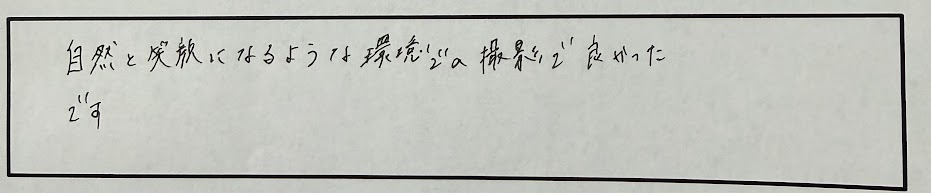 自然と笑顔になるような環境での撮影で良かった
です